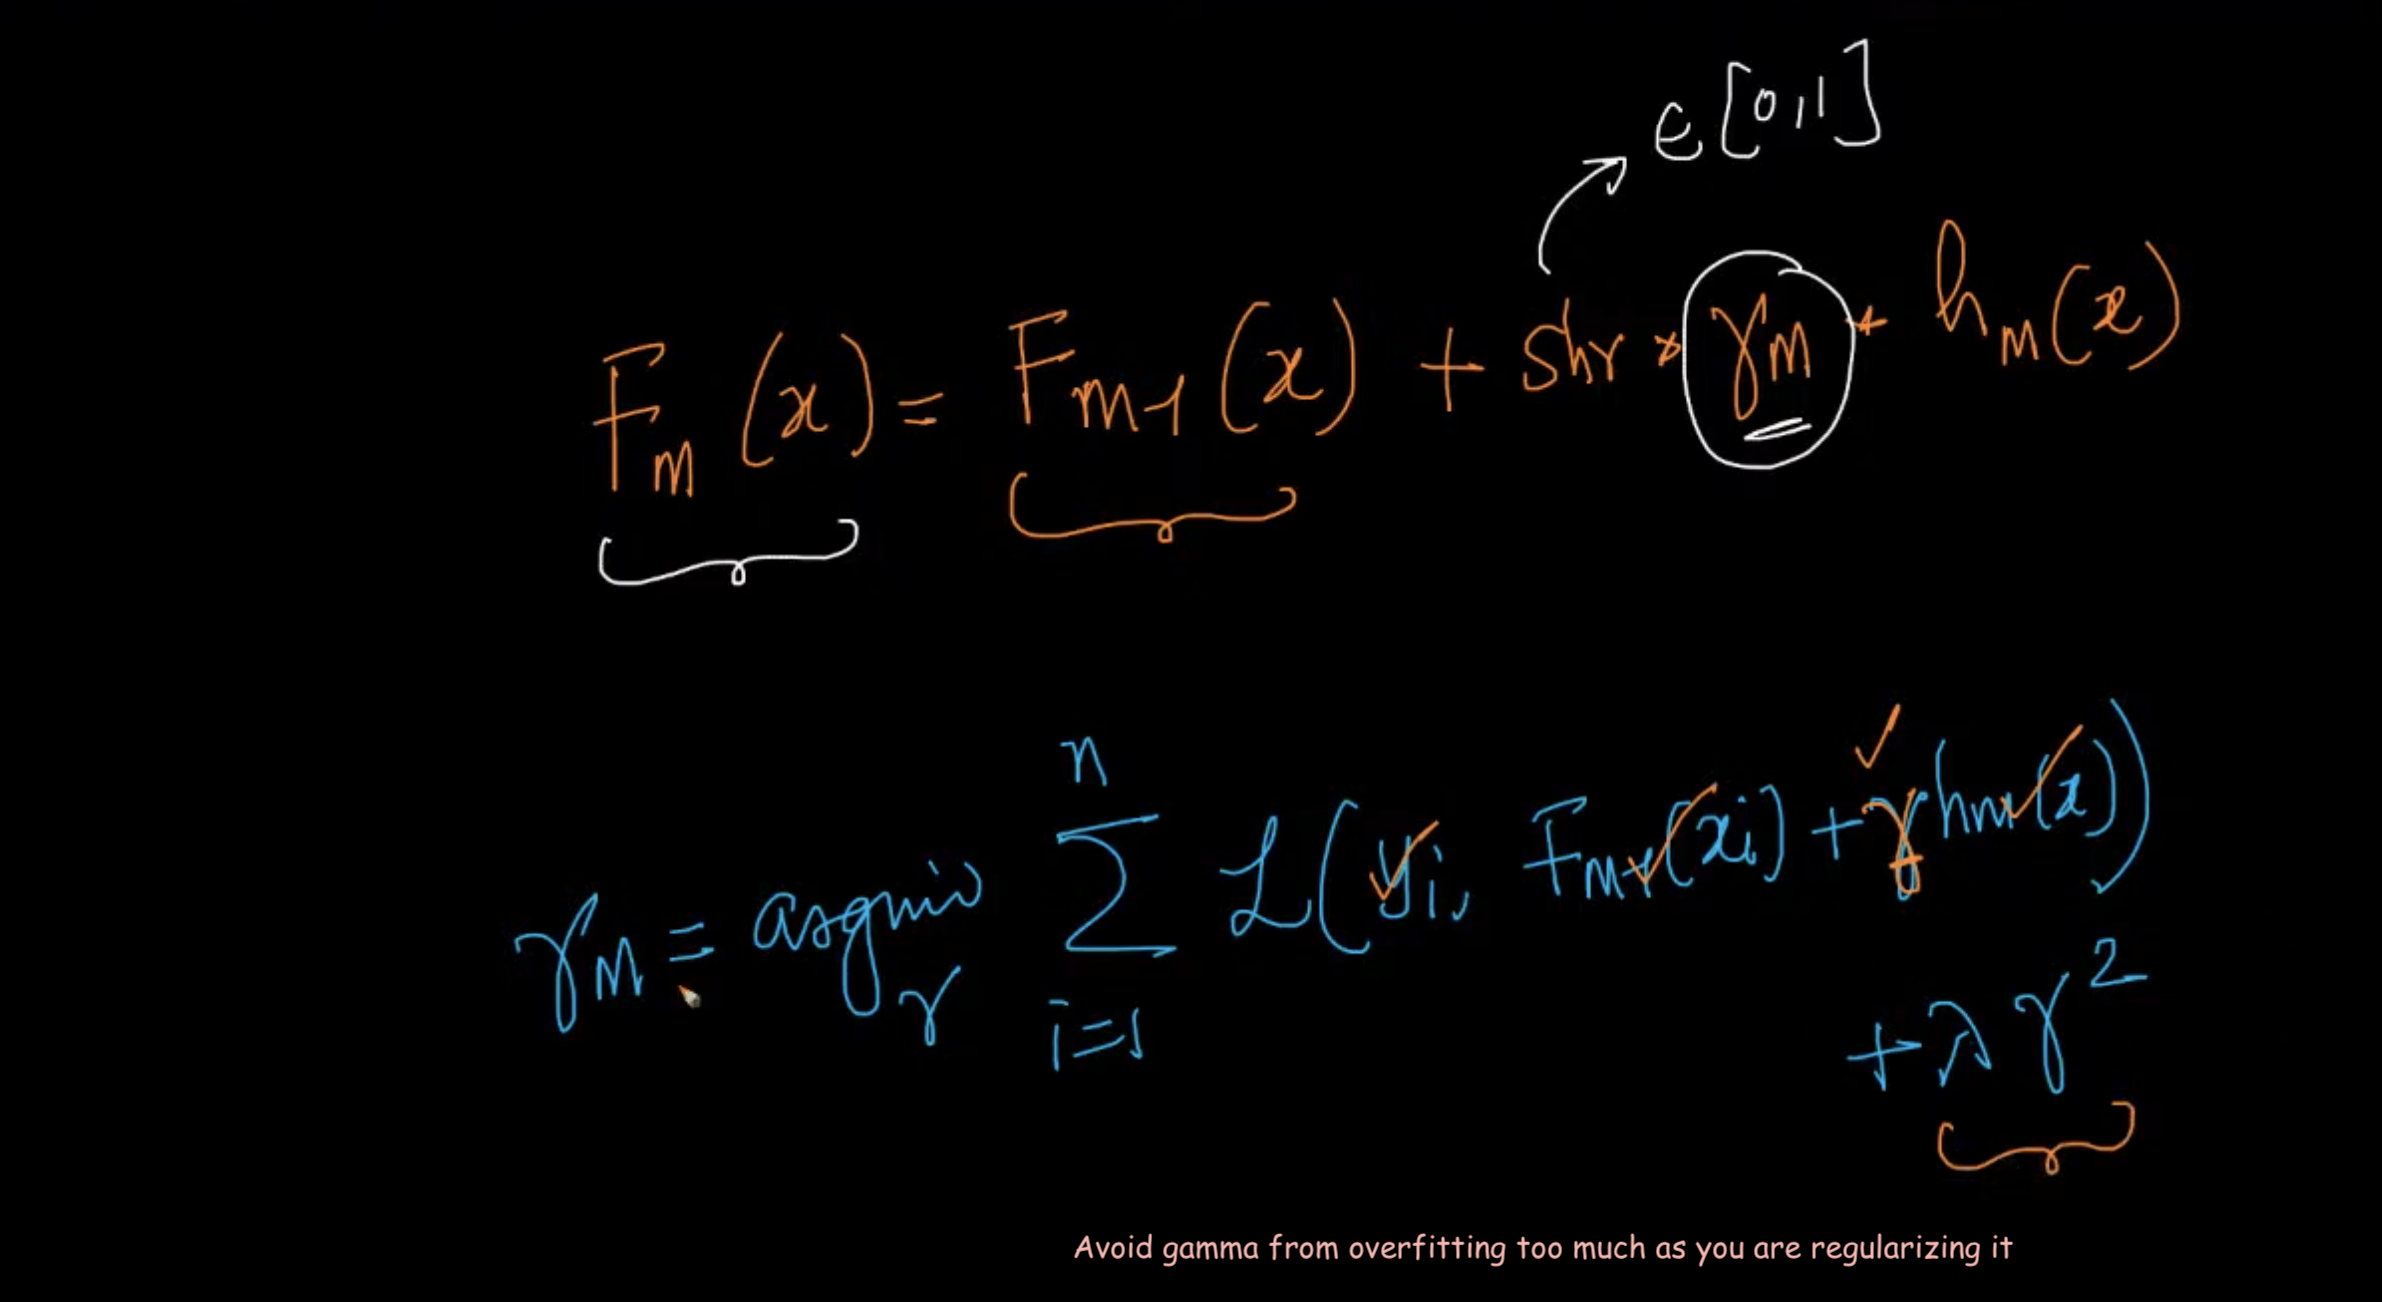 ∈ [0,1]
F_m (x) = F_m-1 (x) + shr * γ_m * h_m(x)
γ_m = argmin_γ Σ_i=1^n L(y_i, F_m-1(x_i) + γ h_m(x))
+ λ γ^2
Avoid gamma from overfitting too much as you are regularizing it